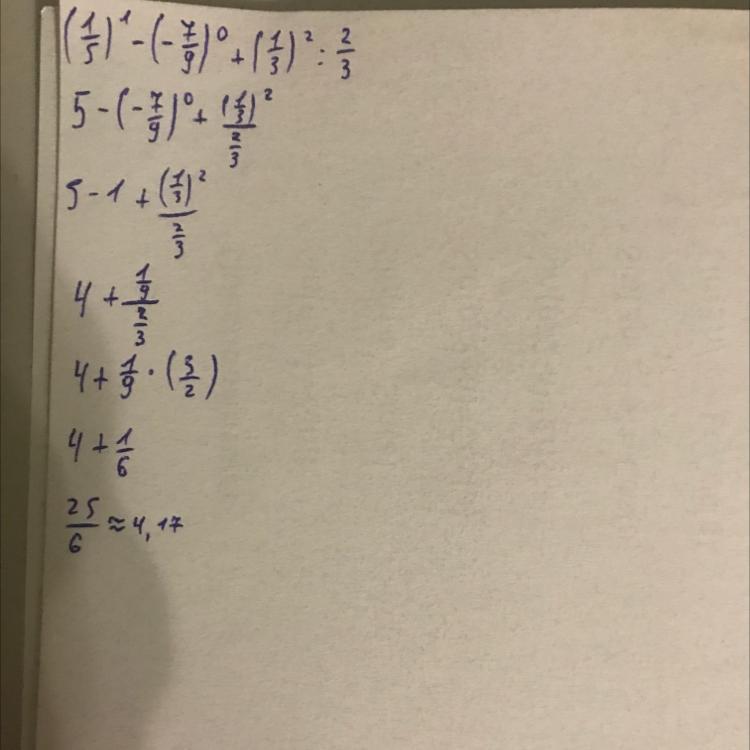 (1/5)^1 - (-7/9)^0 + (1/3)^2 : 2/3
5 - (-7/9)^0 + (1/3)^2 / (2/3)
5 - 1 + (1/3)^2 / (2/3)
4 + (1/9) / (2/3)
4 + 1/9 · (3/2)
4 + 1/6
25/6 ≈ 4,17